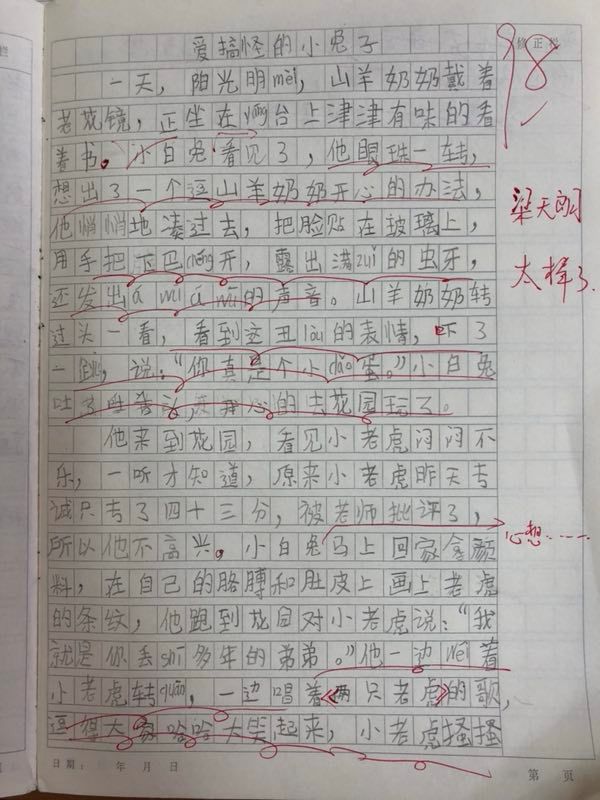 修正栏
爱搞怪的小兔子
98
一天，阳光明mèi，山羊奶奶戴着
老花镜，正坐在yáng台上津津有味的看
着书。小白兔看见了，他眼珠一转，
想出了一个逗山羊奶奶开心的办法，
梁天朗
他悄悄地凑过去，把脸贴在玻璃上，
用手把下巴chēng开，露出满zuǐ的虫牙，
太棒了.
还发出á mī á mī的声音。山羊奶奶转
过头一看，看到这丑lòu的表情，吓了
一跳，说：“你真是个小dǎo蛋。”小白兔
吐了吐舌头，开心的去花园玩了。
他来到花园，看见小老虎闷闷不
乐，一听才知道，原来小老虎昨天考
试只考了四十三分，被老师批评了，
心想……
所以他不高兴。小白兔马上回家拿颜
料，在自己的胳膊和肚皮上画上老虎
的条纹，他跑到花园对小老虎说：“我
就是你丢shī多年的弟弟。”他一边wéi着
小老虎转quān，一边唱着《两只老虎》的歌，
逗得大家哈哈大笑起来，小老虎搔搔
日期： 年 月 日
第 页